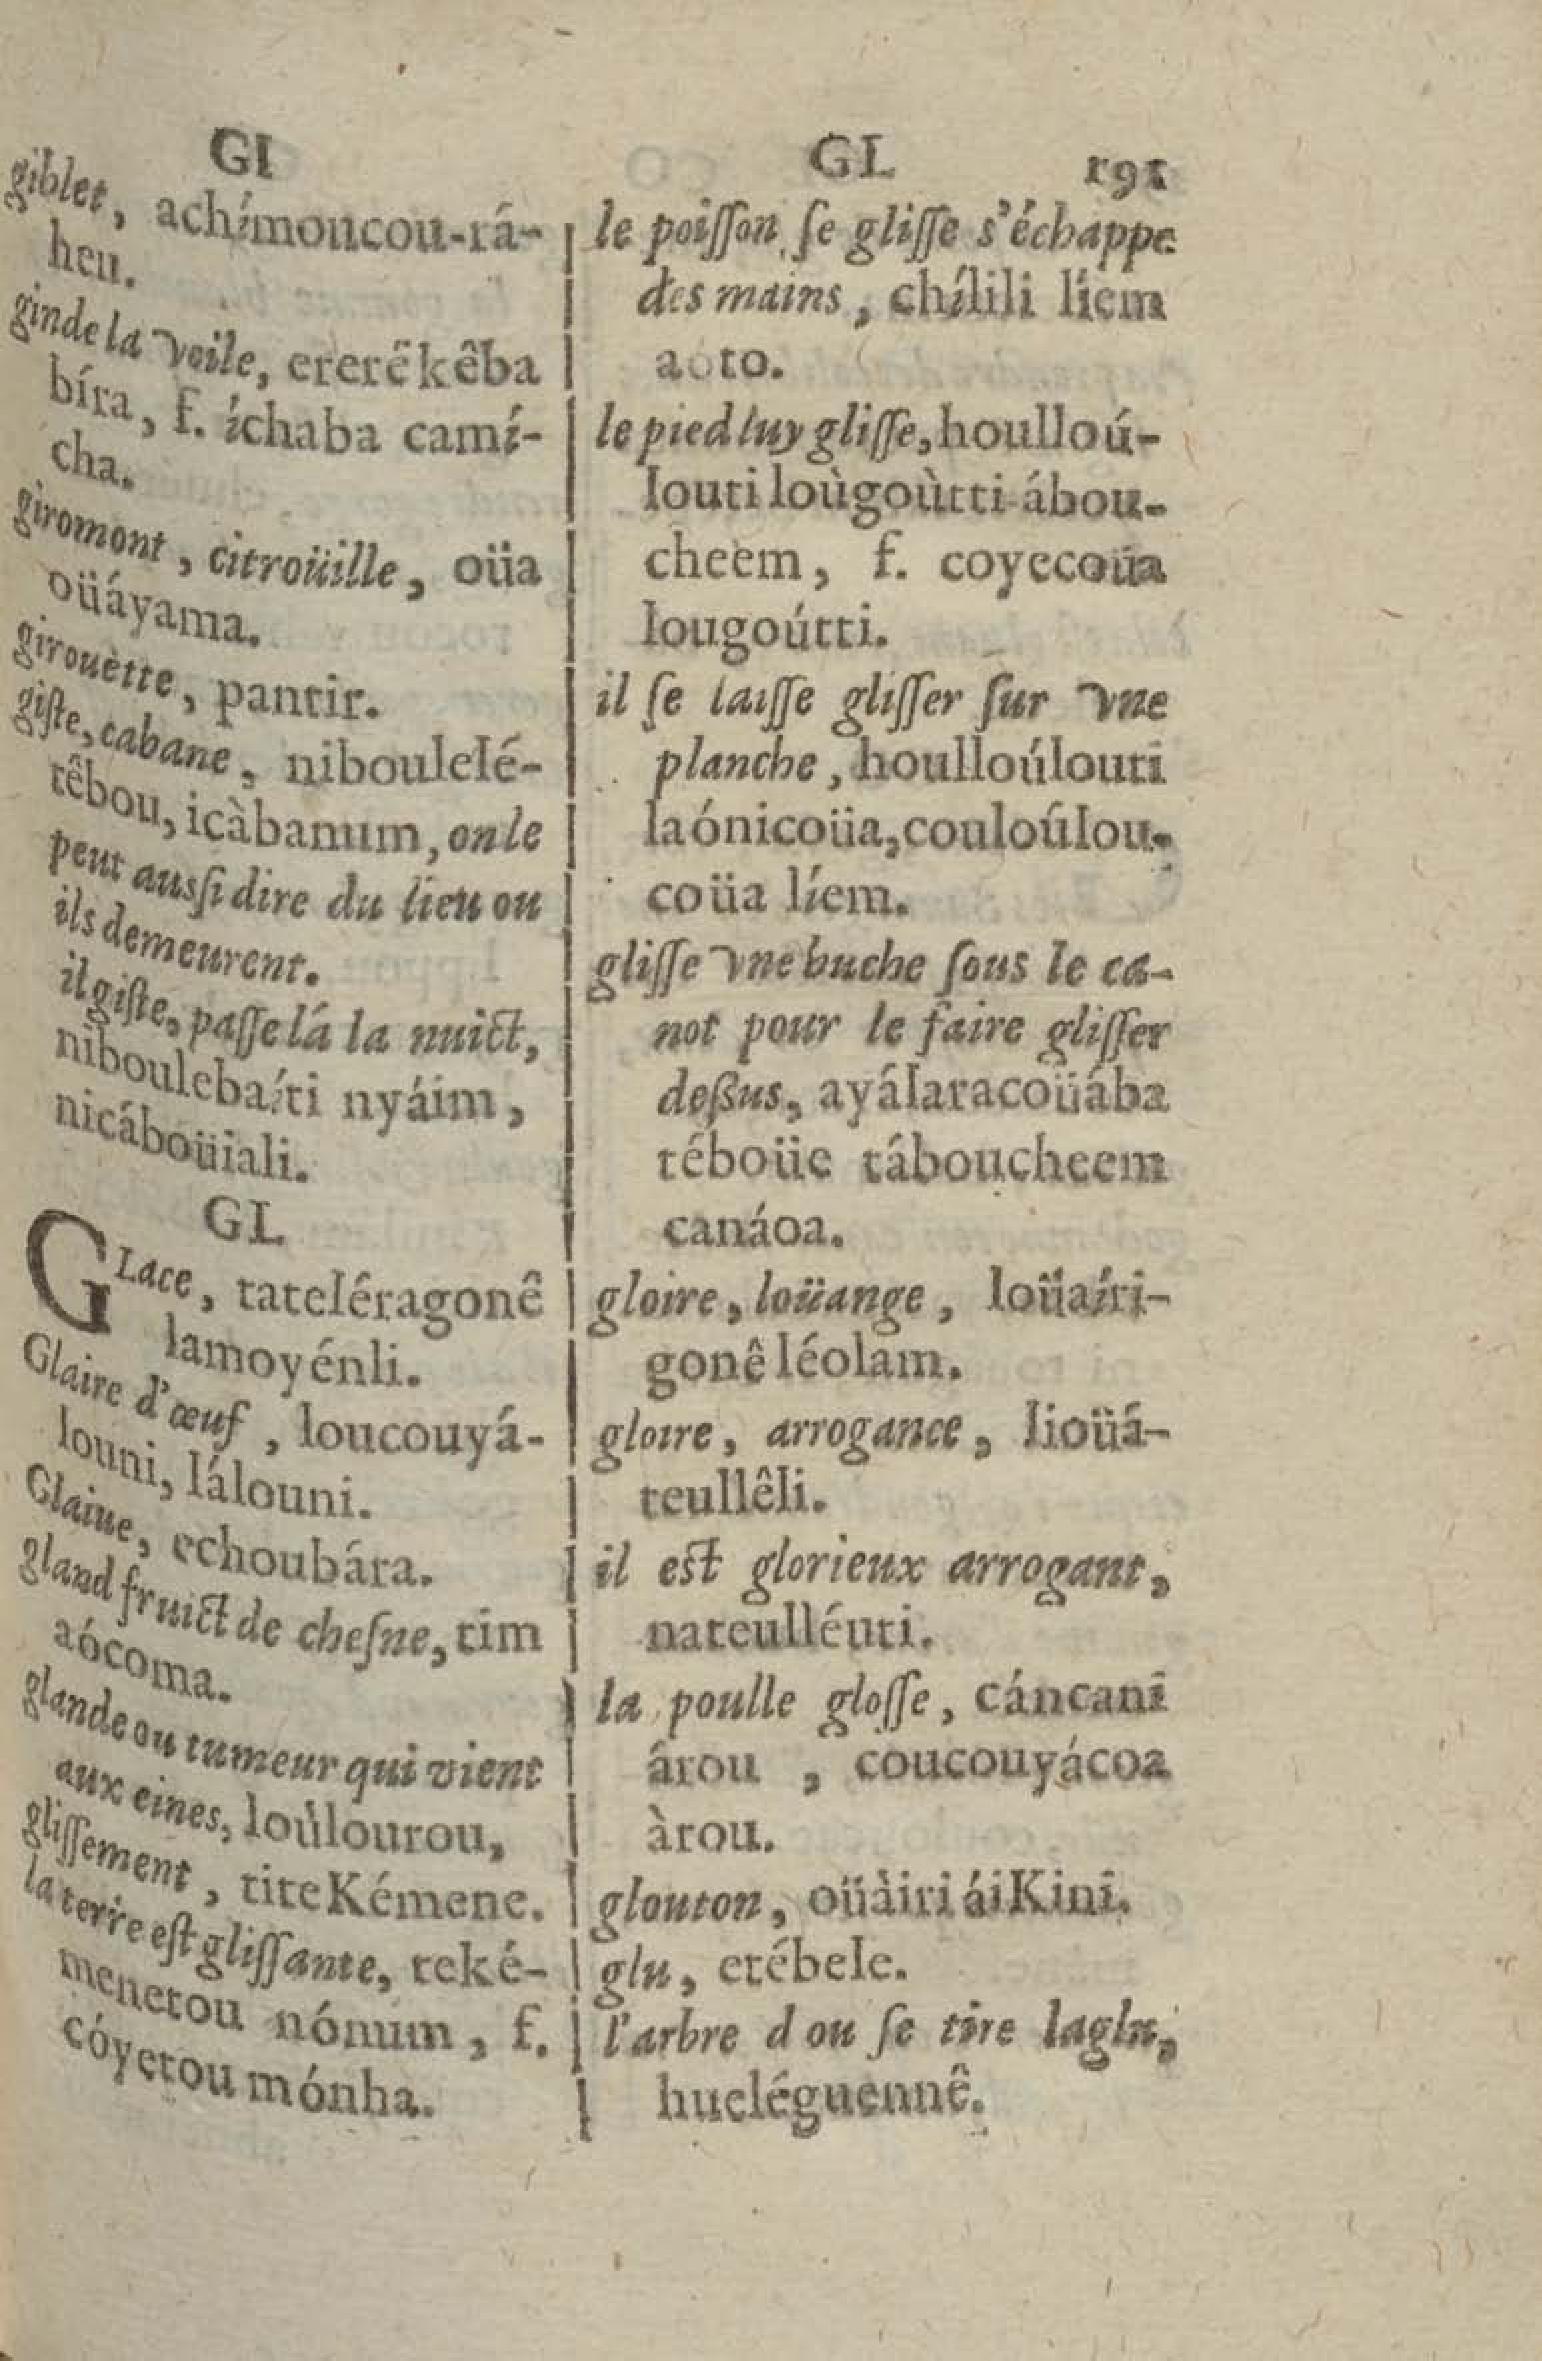 GI
giblet, achímoucou-rá-
heu.
ginde la voile, ererêkêba
bíra, f. íchaba camí-
cha.
giromont, citroüille, oüa
oüáyama.
girouètte, pantir.
giſte, cabane, niboulelé-
têbou, icàbanum, on le
peut auſſi dire du lieu ou
ils demeurent.
il giſte, paſſe lá la nuict,
niboulebaíti nyáim,
nicáboüiali.
GL
GLace, tateléragonê
lamoyénli.
Glaire d'œuf, loucouyá-
louni, lálouni.
Glaiue, echoubára.
gland fruict de cheſne, tim
aócoma.
glande ou tumeur qui vient
aux eines, loúlourou,
gliſſement, titeKémene.
la terre eſt gliſſante, teké-
menetou nónum, f.
cóyetou mónha.
GL 191
le poiſſon ſe gliſſe s'échappe
des mains, chílili líem
aóto.
le pied luy gliſſe, houlloú-
louti loùgoùtti ábou-
cheem, f. coyecoüa
lougoútti.
il ſe laiſſe gliſſer ſur vne
planche, houlloúlouti
laónicoüa, couloúlou-
coüa líem.
gliſſe vne buche ſous le ca-
not pour le faire gliſſer
deßus, ayálaracoüába
téboüe táboucheem
canáoa.
gloire, loüange, loüaíri-
gonê léolam.
gloire, arrogance, lioüá-
teullêli.
il eſt glorieux arrogant,
nateulléuti.
la poulle gloſſe, cáncanî
árou, coucouyácoa
àrou.
glouton, oüàiri áiKini.
glu, etébele.
l'arbre d ou ſe tire laglu,
hueléguennê.